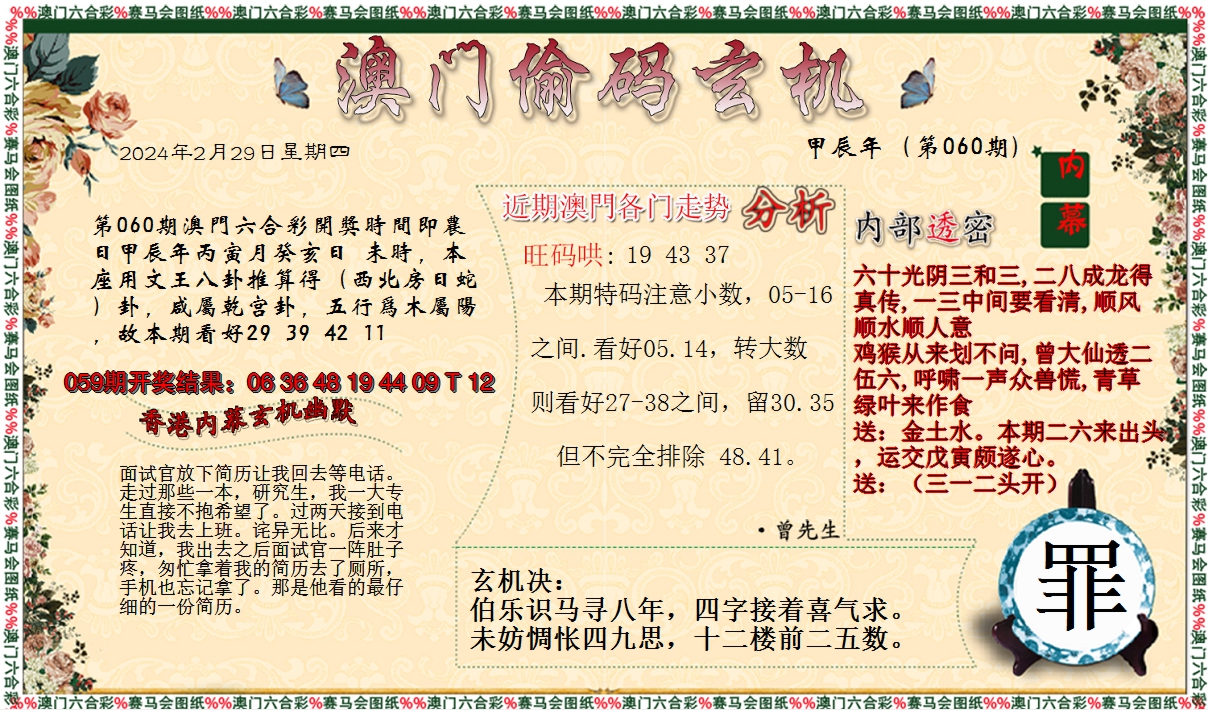 %%澳门六合彩%赛马会图纸%%澳门六合彩%赛马会图纸%%澳门六合彩%赛马会图纸%%澳门六合彩%赛马会图纸%%澳门六合彩%赛马会图纸%%澳门六合彩%赛马会图纸%%
澳门偷码玄机
2024年2月29日星期四
甲辰年（第060期）
内幕
第060期澳門六合彩開獎時間即農
日甲辰年丙寅月癸亥日 未時，本
座用文王八卦推算得（西北房日蛇
）卦，咸屬乾宫卦，五行爲木屬陽
，故本期看好29 39 42 11
059期开奖结果：06 36 48 19 44 09 T 12
香港内幕玄机幽默
面试官放下简历让我回去等电话。
走过那些一本，研究生，我一大专
生直接不抱希望了。过两天接到电
话让我去上班。诧异无比。后来才
知道，我出去之后面试官一阵肚子
疼，匆忙拿着我的简历去了厕所，
手机也忘记拿了。那是他看的最仔
细的一份简历。
近期澳門各门走势 分析
旺码哄: 19 43 37
本期特码注意小数，05-16
之间.看好05.14，转大数
则看好27-38之间，留30.35
但不完全排除 48.41。
·曾先生
内部透密
六十光阴三和三,二八成龙得
真传,一三中间要看清,顺风
顺水顺人意
鸡猴从来划不问,曾大仙透二
伍六,呼啸一声众兽慌,青草
绿叶来作食
送：金土水。本期二六来出头
，运交戊寅颇遂心。
送：（三一二头开）
玄机决：
伯乐识马寻八年，四字接着喜气求。
未妨惆怅四九思，十二楼前二五数。
罪
%%澳门六合彩%赛马会图纸%%澳门六合彩%赛马会图纸%%澳门六合彩%赛马会图纸%%澳门六合彩%赛马会图纸%%澳门六合彩%赛马会图纸%%澳门六合彩%赛马会图纸%%